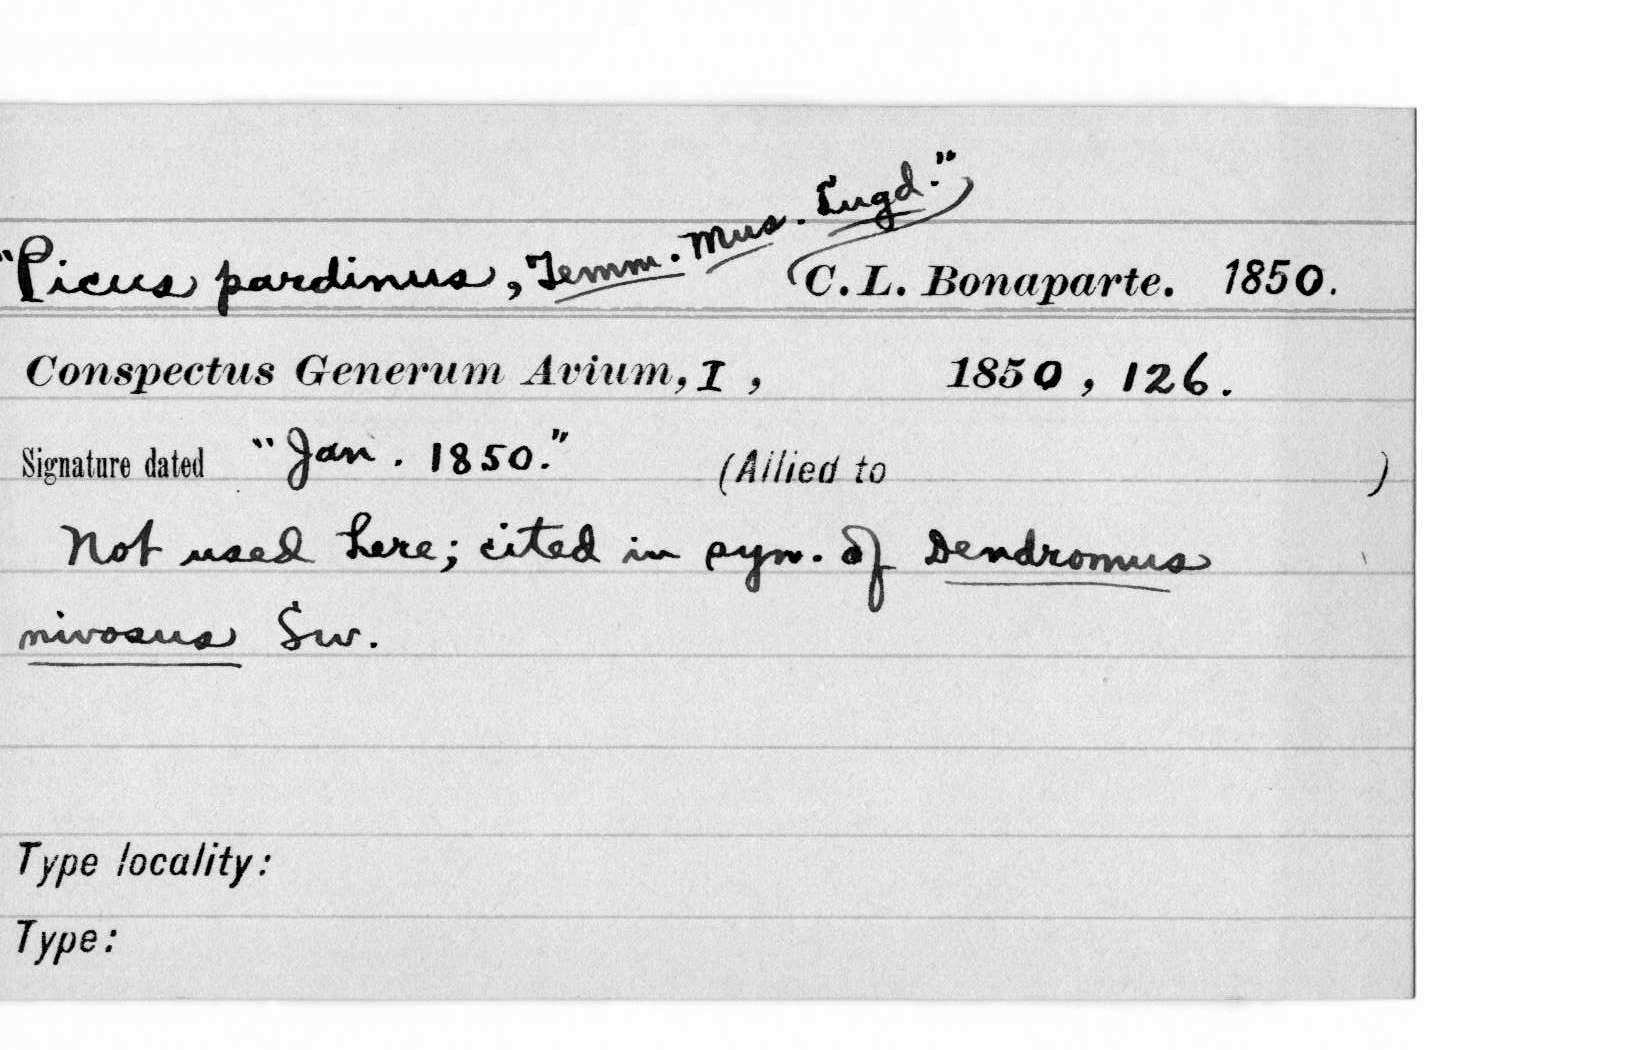 "Picus pardinus, Temm. Mus. Lugd." C. L. Bonaparte. 1850.
Conspectus Generum Avium, I, 1850, 126.
Signature dated "Jan. 1850." (Allied to )
Not used here; cited in syn. of Dendromus
nivosus Sw.
Type locality:
Type: